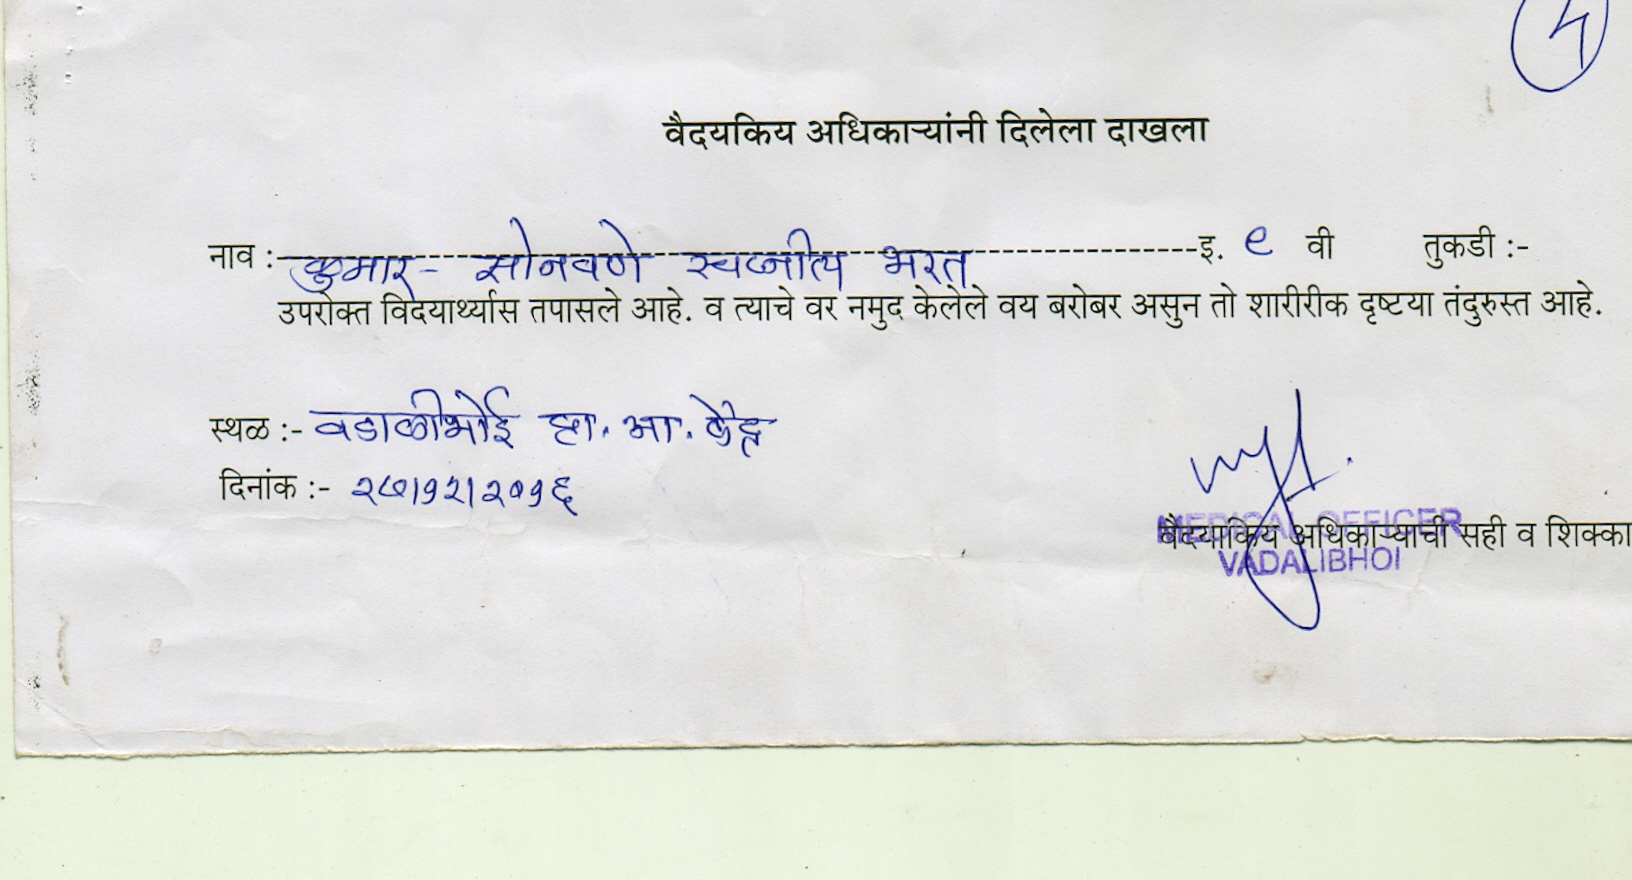 ५
वैदयकिय अधिकाऱ्यांनी दिलेला दाखला
नाव :- कुमार - सोनवणे स्वप्नील भरत इ. ९ वी तुकडी :-
उपरोक्त विदयार्थ्यास तपासले आहे. व त्याचे वर नमुद केलेले वय बरोबर असुन तो शारीरीक दृष्टया तंदुरुस्त आहे.
स्थळ :- वडाळीभोई प्रा. आ. केंद्र
दिनांक :- २७/१२/२०१६
MEDICAL OFFICER
वैदयाकिय अधिकाऱ्याची सही व शिक्का
VADALIBHOI